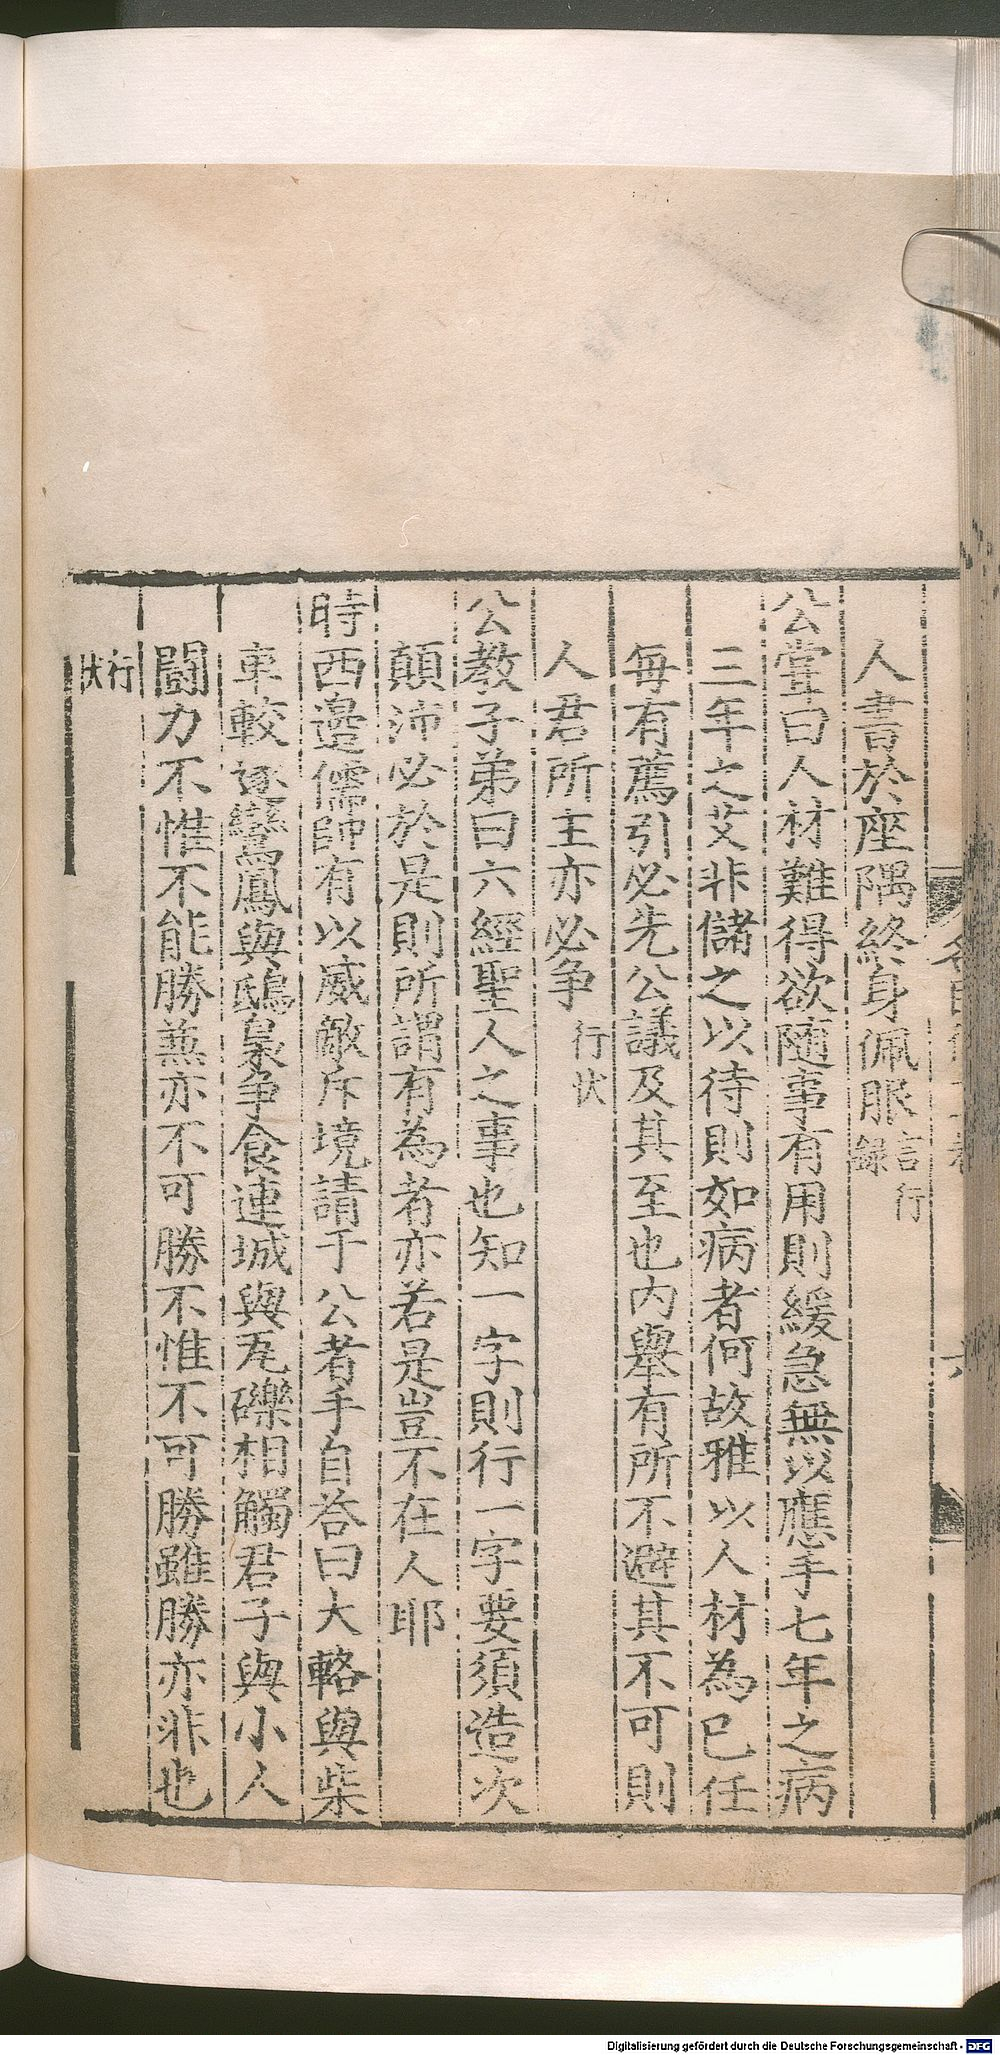 人書於座隅終身佩服言行錄
公嘗曰人材難得欲隨事有用則緩急無以應手七年之病
三年之艾非儲之以待則如病者何故雅以人材為己任
每有薦引必先公議及其至也內舉有所不避其不可則
人君所主亦必争行狀
公教子弟曰六經聖人之事也知一字則行一字要須造次
顛沛必於是則所謂有為者亦若是豈不在人耶
時西邉儒帥有以威敵斥境請于公者手自荅曰大輅與柴
車較逐鸞鳳與鴟梟争食連城與瓦礫相觸君子與小人
鬬力不惟不能勝兼亦不可勝不惟不可勝雖勝亦非也
行狀
Digitalisierung gefördert durch die Deutsche Forschungsgemeinschaft - DFG